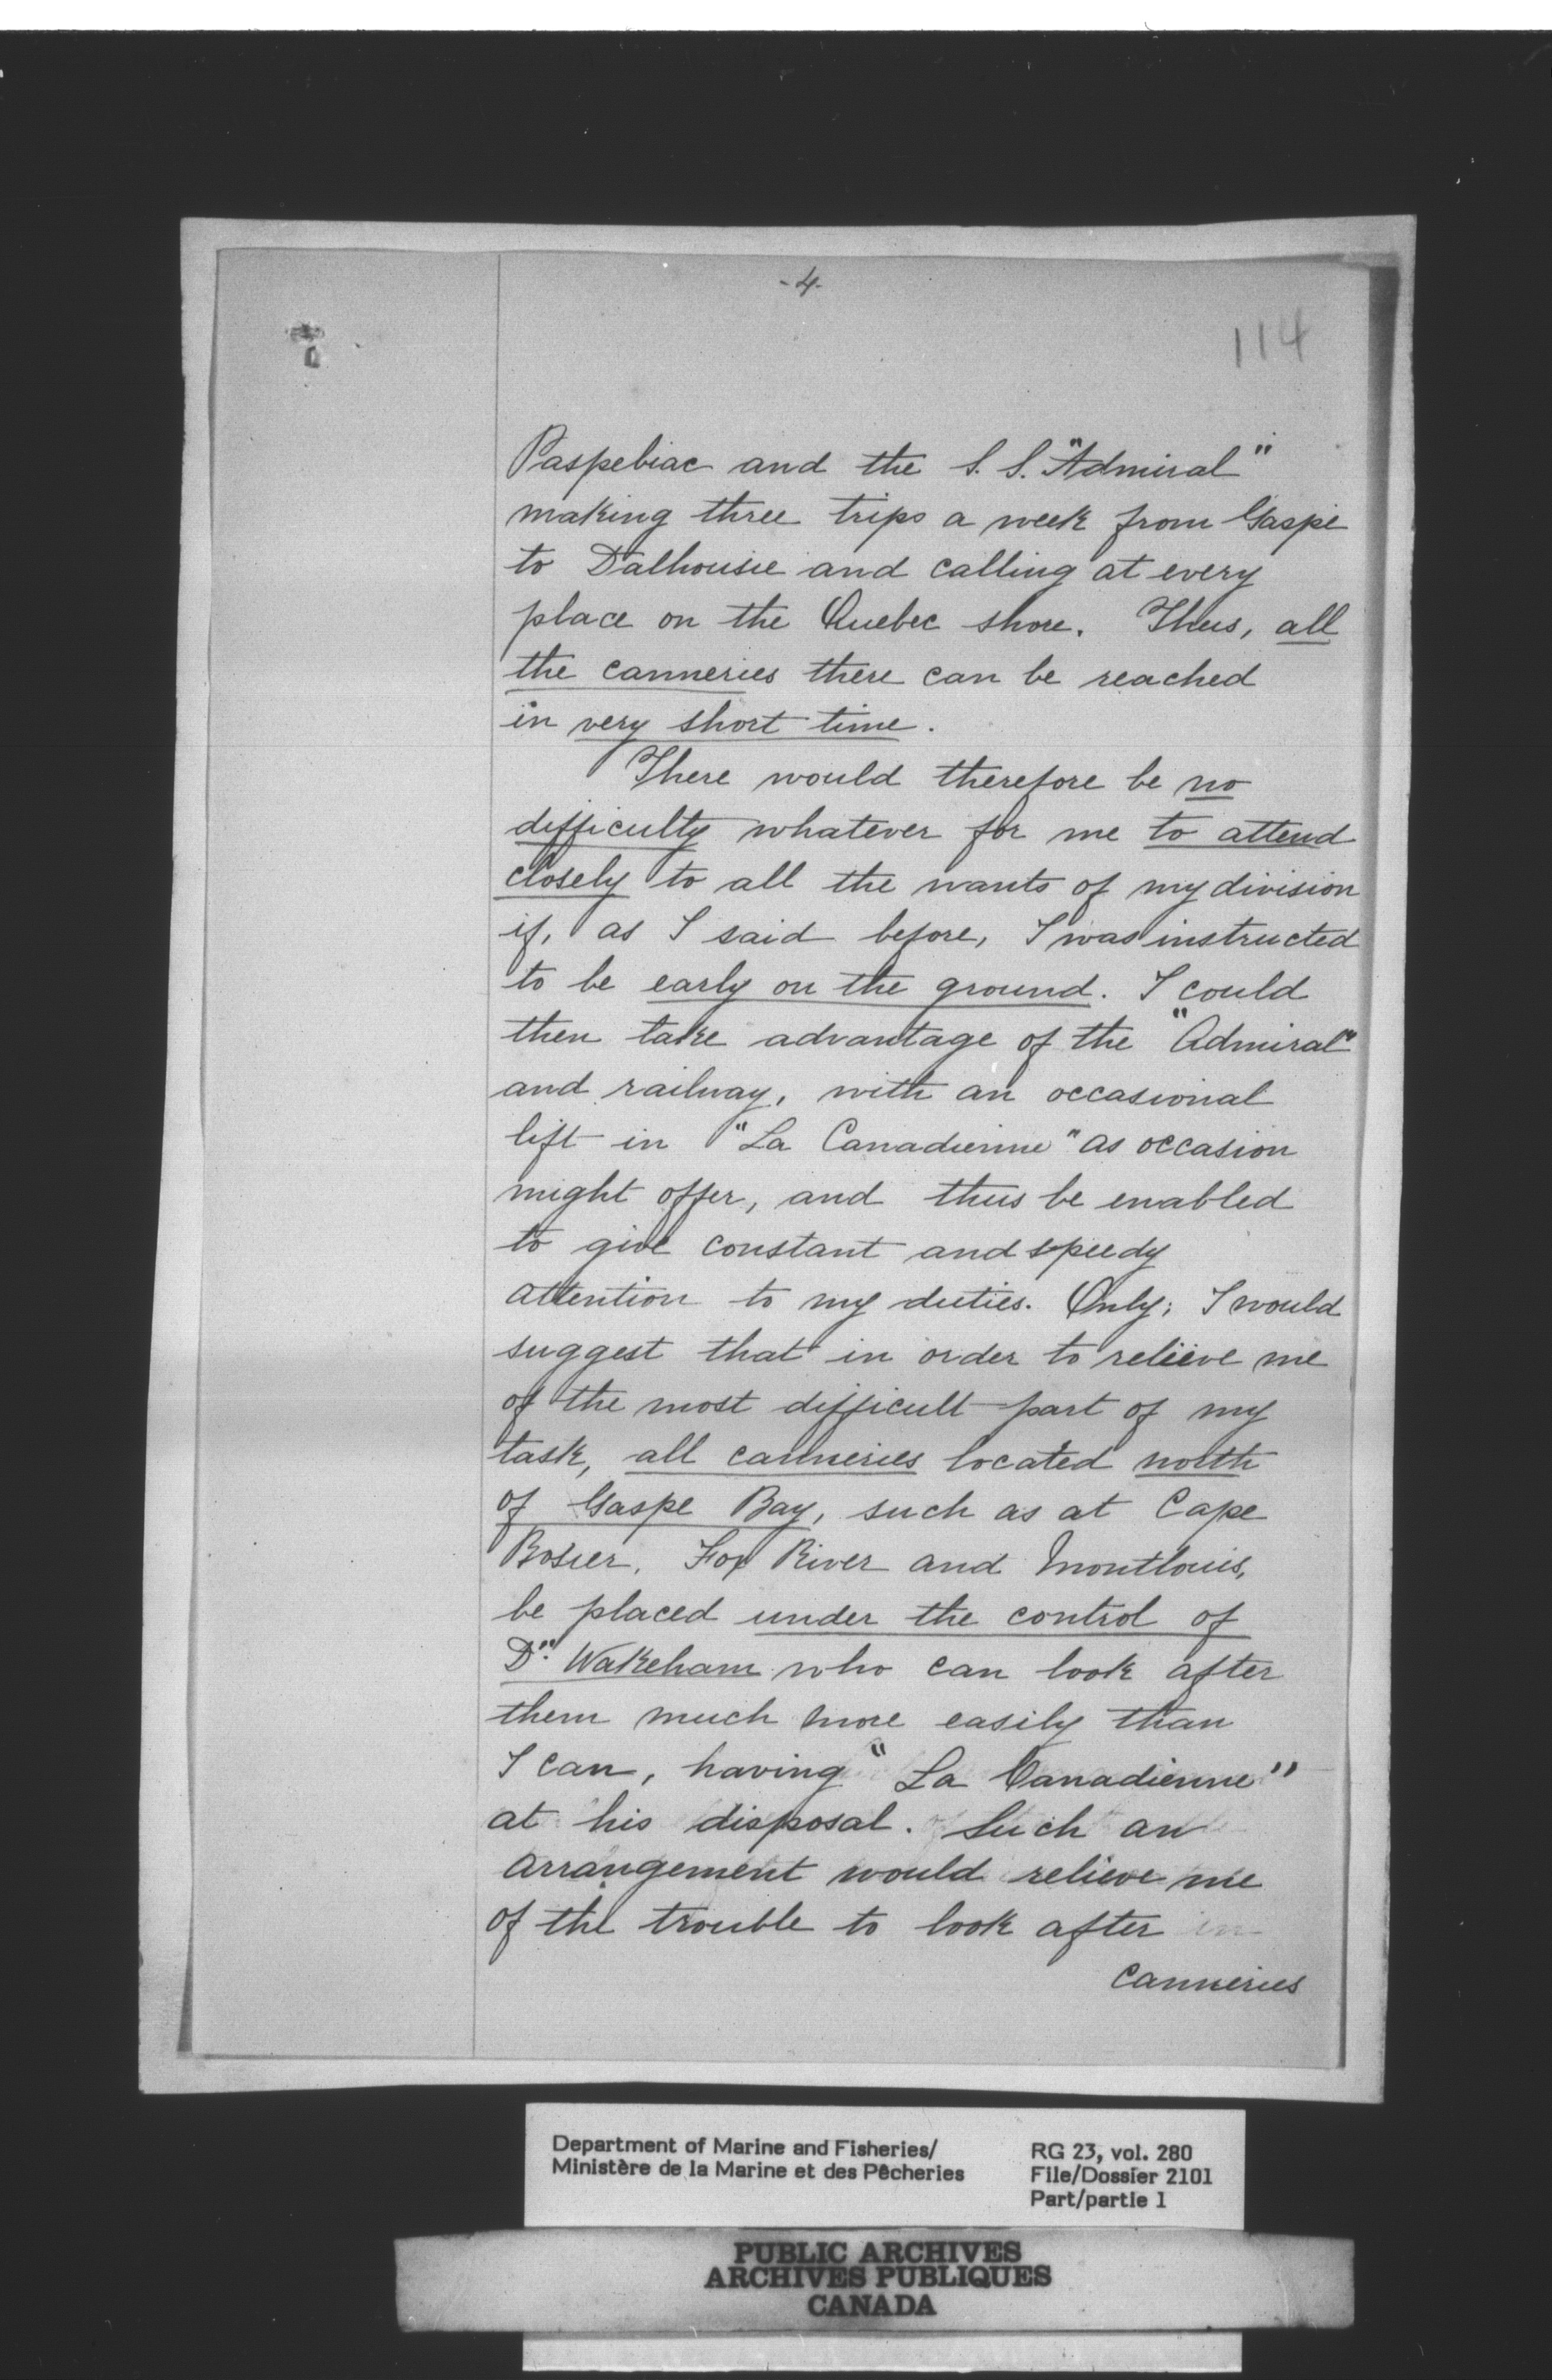 -4-
114
Paspebiac and the S. S. "Admiral"
making three trips a week from Gaspé
to Dalhousie and calling at every
place on the Quebec shore. Thus, all
the canneries there can be reached
in very short time.
There would therefore be no
difficulty whatever for me to attend
closely to all the wants of my division
if, as I said before, I was instructed
to be early on the ground. I could
then take advantage of the "Admiral"
and railway, with an occasional
lift in "La Canadienne" as occasion
might offer, and thus be enabled
to give constant and speedy
attention to my duties. Only; I would
suggest that in order to relieve me
of the most difficult part of my
task, all canneries located north
of Gaspe Bay, such as at Cape
Rosier, Fox River and Montlouis,
be placed under the control of
Dr. Wakeham who can look after
them much more easily than
I can, having "La Canadienne"
at his disposal. Such an
arrangement would relieve me
of the trouble to look after
canneries
Department of Marine and Fisheries/
Ministère de la Marine et des Pêcheries
RG 23, vol. 280
File/Dossier 2101
Part/partie 1
PUBLIC ARCHIVES
ARCHIVES PUBLIQUES
CANADA